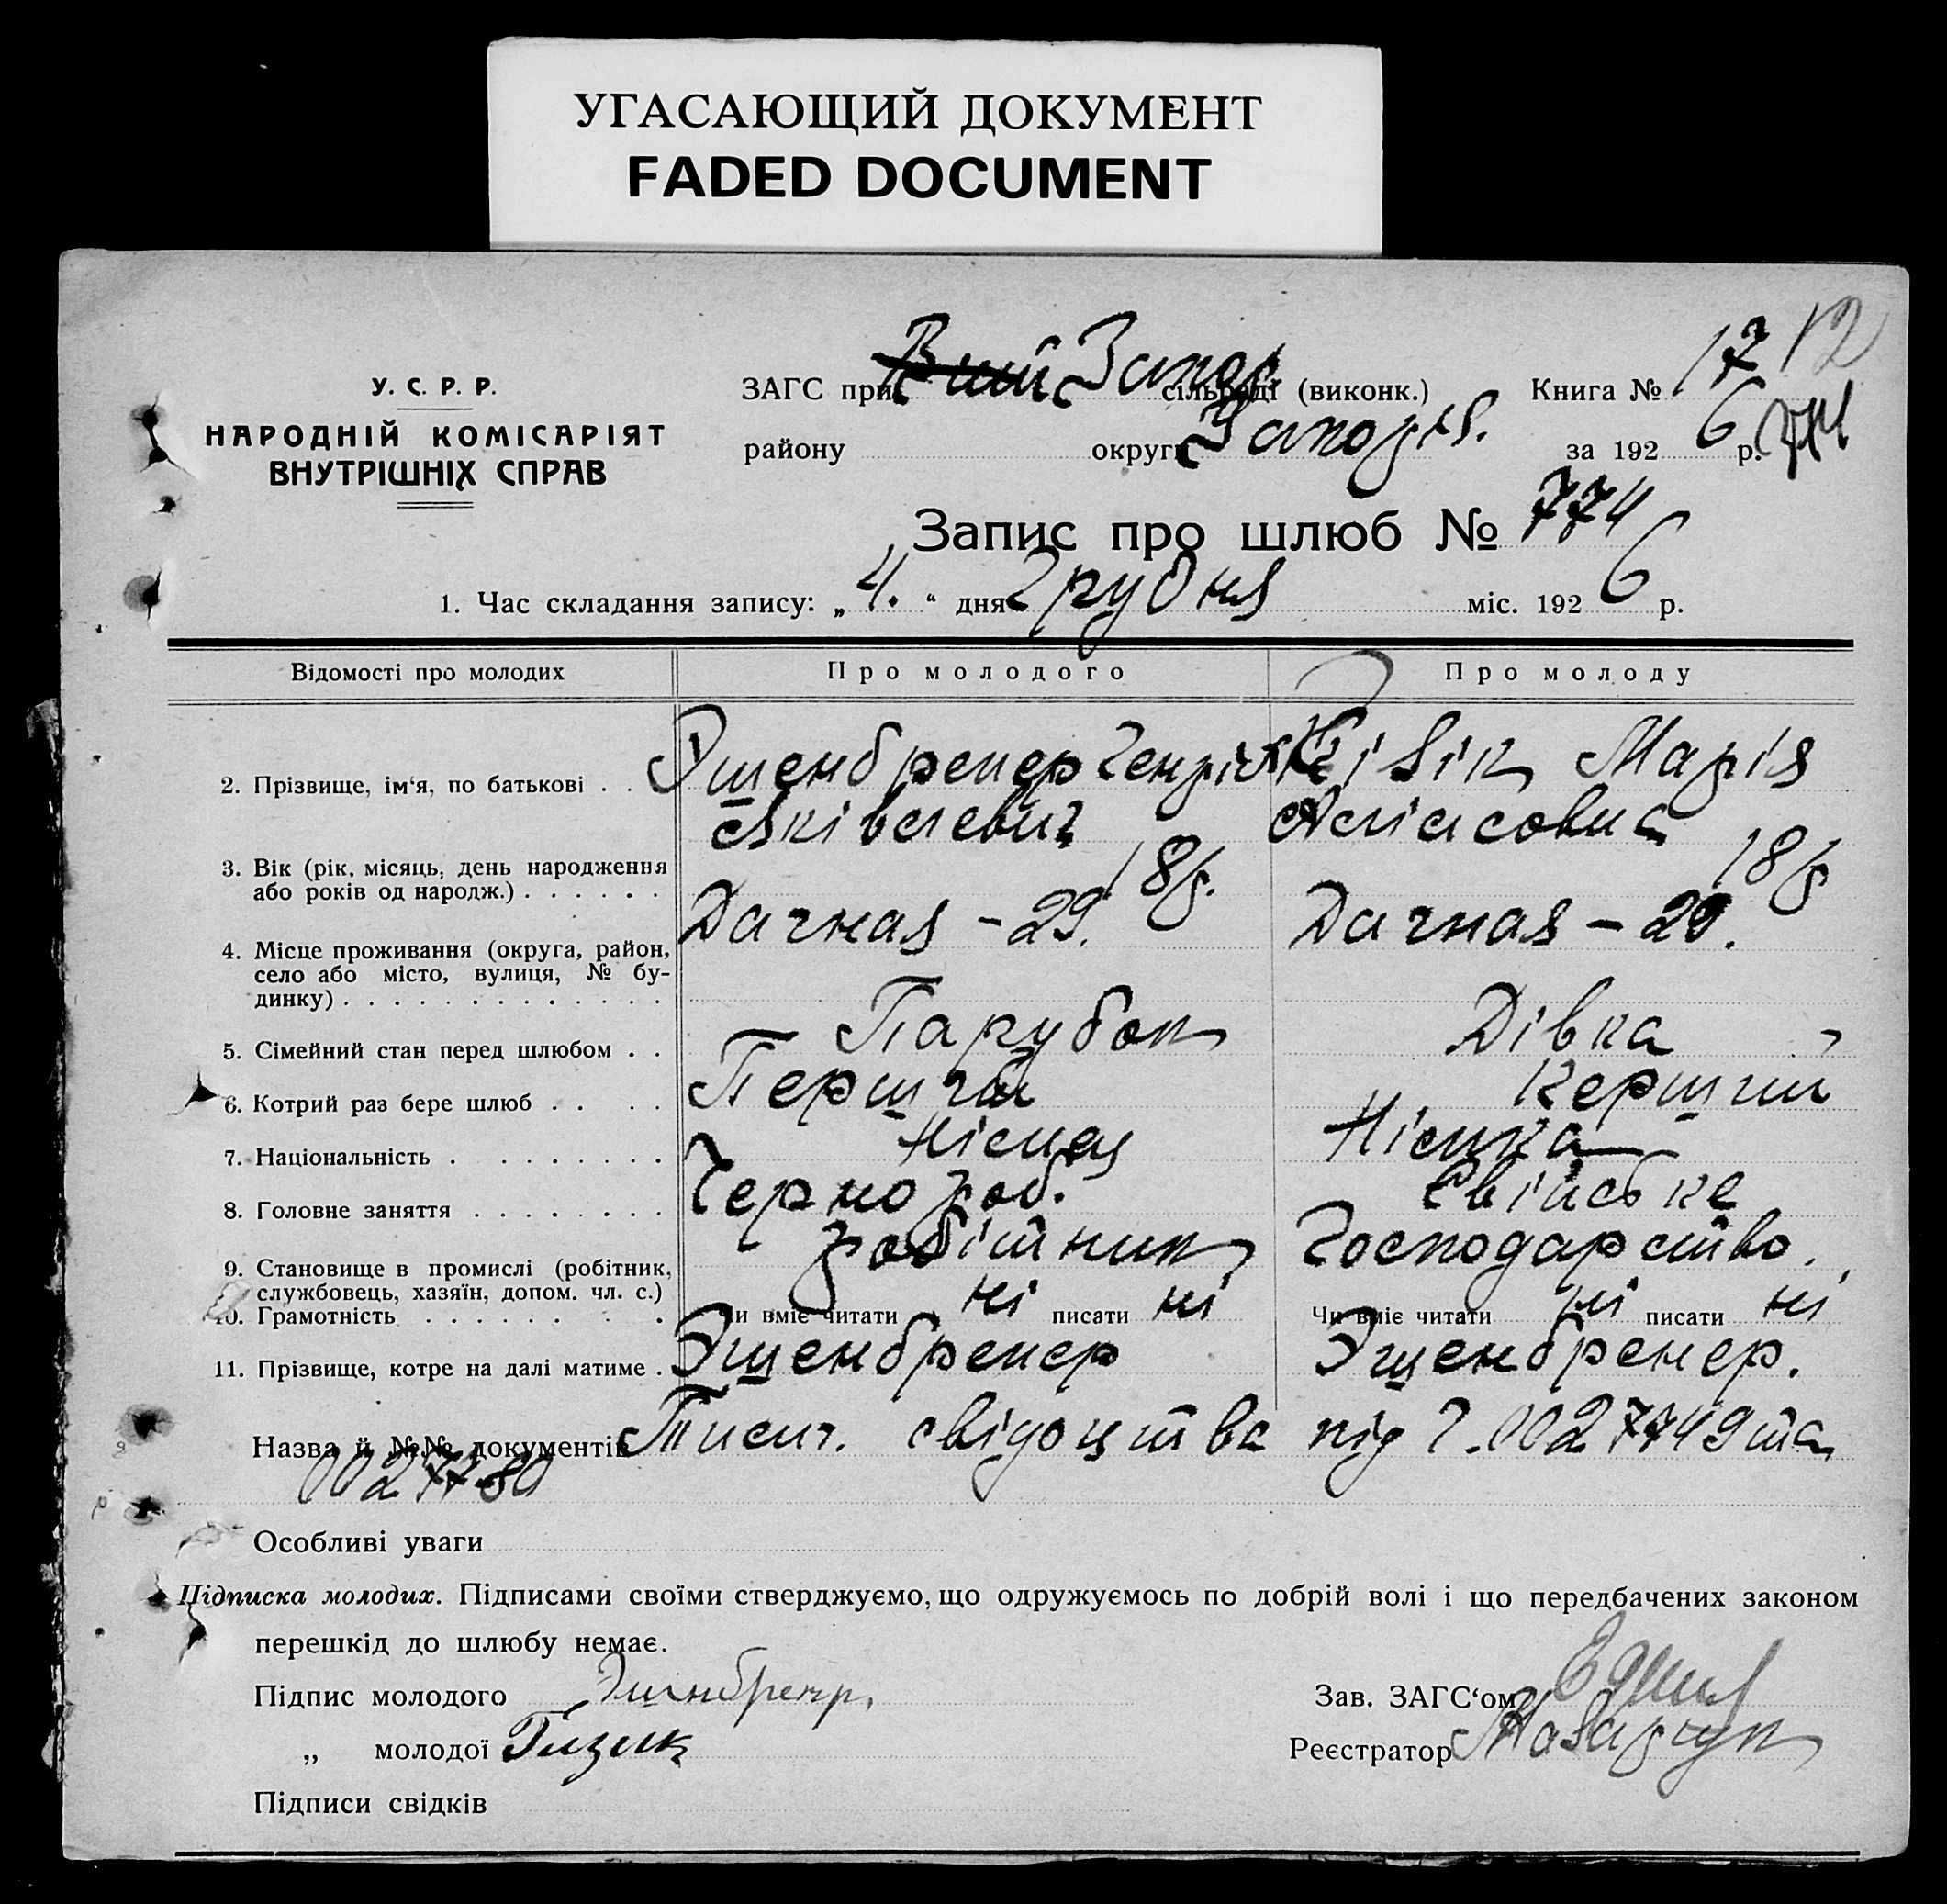 УГАСАЮЩИЙ ДОКУМЕНТ
FADED DOCUMENT
У. С. Р. Р.
НАРОДНІЙ КОМІСАРІЯТ
ВНУТРІШНІХ СПРАВ
ЗАГС при Запор сільраді (виконк.) Книга № 17 12
району округи Запоріз. за 1926 р. 774
Запис про шлюб № 774
1. Час складання запису: „4.“ дня Грудня міс. 1926 р.
Відомості про молодих Про молодого Про молоду
2. Прізвище, ім‘я, по батькові . . Эшенбренер Генріх Марія
Яківлевич
3. Вік (рік, місяць, день народження
або років од народж.) . . . . . . 18 р. 18 р
4. Місце проживання (округа, район,
село або місто, вулиця, № бу-
динку) . . . . . . . . . . . . . . Дачная – 29. Дачная – 29.
5. Сімейний стан перед шлюбом . . Парубок Дівка
6. Котрий раз бере шлюб . . . . Перший Перший
7. Національність . . . . . . . . . Німец Німка
8. Головне заняття . . . . . . . . Чернороб. Свійське
9. Становище в промислі (робітник,
службовець, хазяїн, допом. чл. с.) робітник Господарство.
10. Грамотність . . . . . . . . Чи вміє читати ні писати ні Чи вміє читати ні писати ні
11. Прізвище, котре на далі матиме . Эшенбренер Эшенбренер.
Назва й №№ документів свідоцтва під Ч. 0027749 та
0027750
Особливі уваги
Підписка молодих. Підписами своїми стверджуємо, що одружуємось по добрій волі і що передбачених законом
перешкід до шлюбу немає.
Підпис молодого Эшнбренр. Зав. ЗАГС‘ом
„ молодої Гизик Реєстратор
Підписи свідків